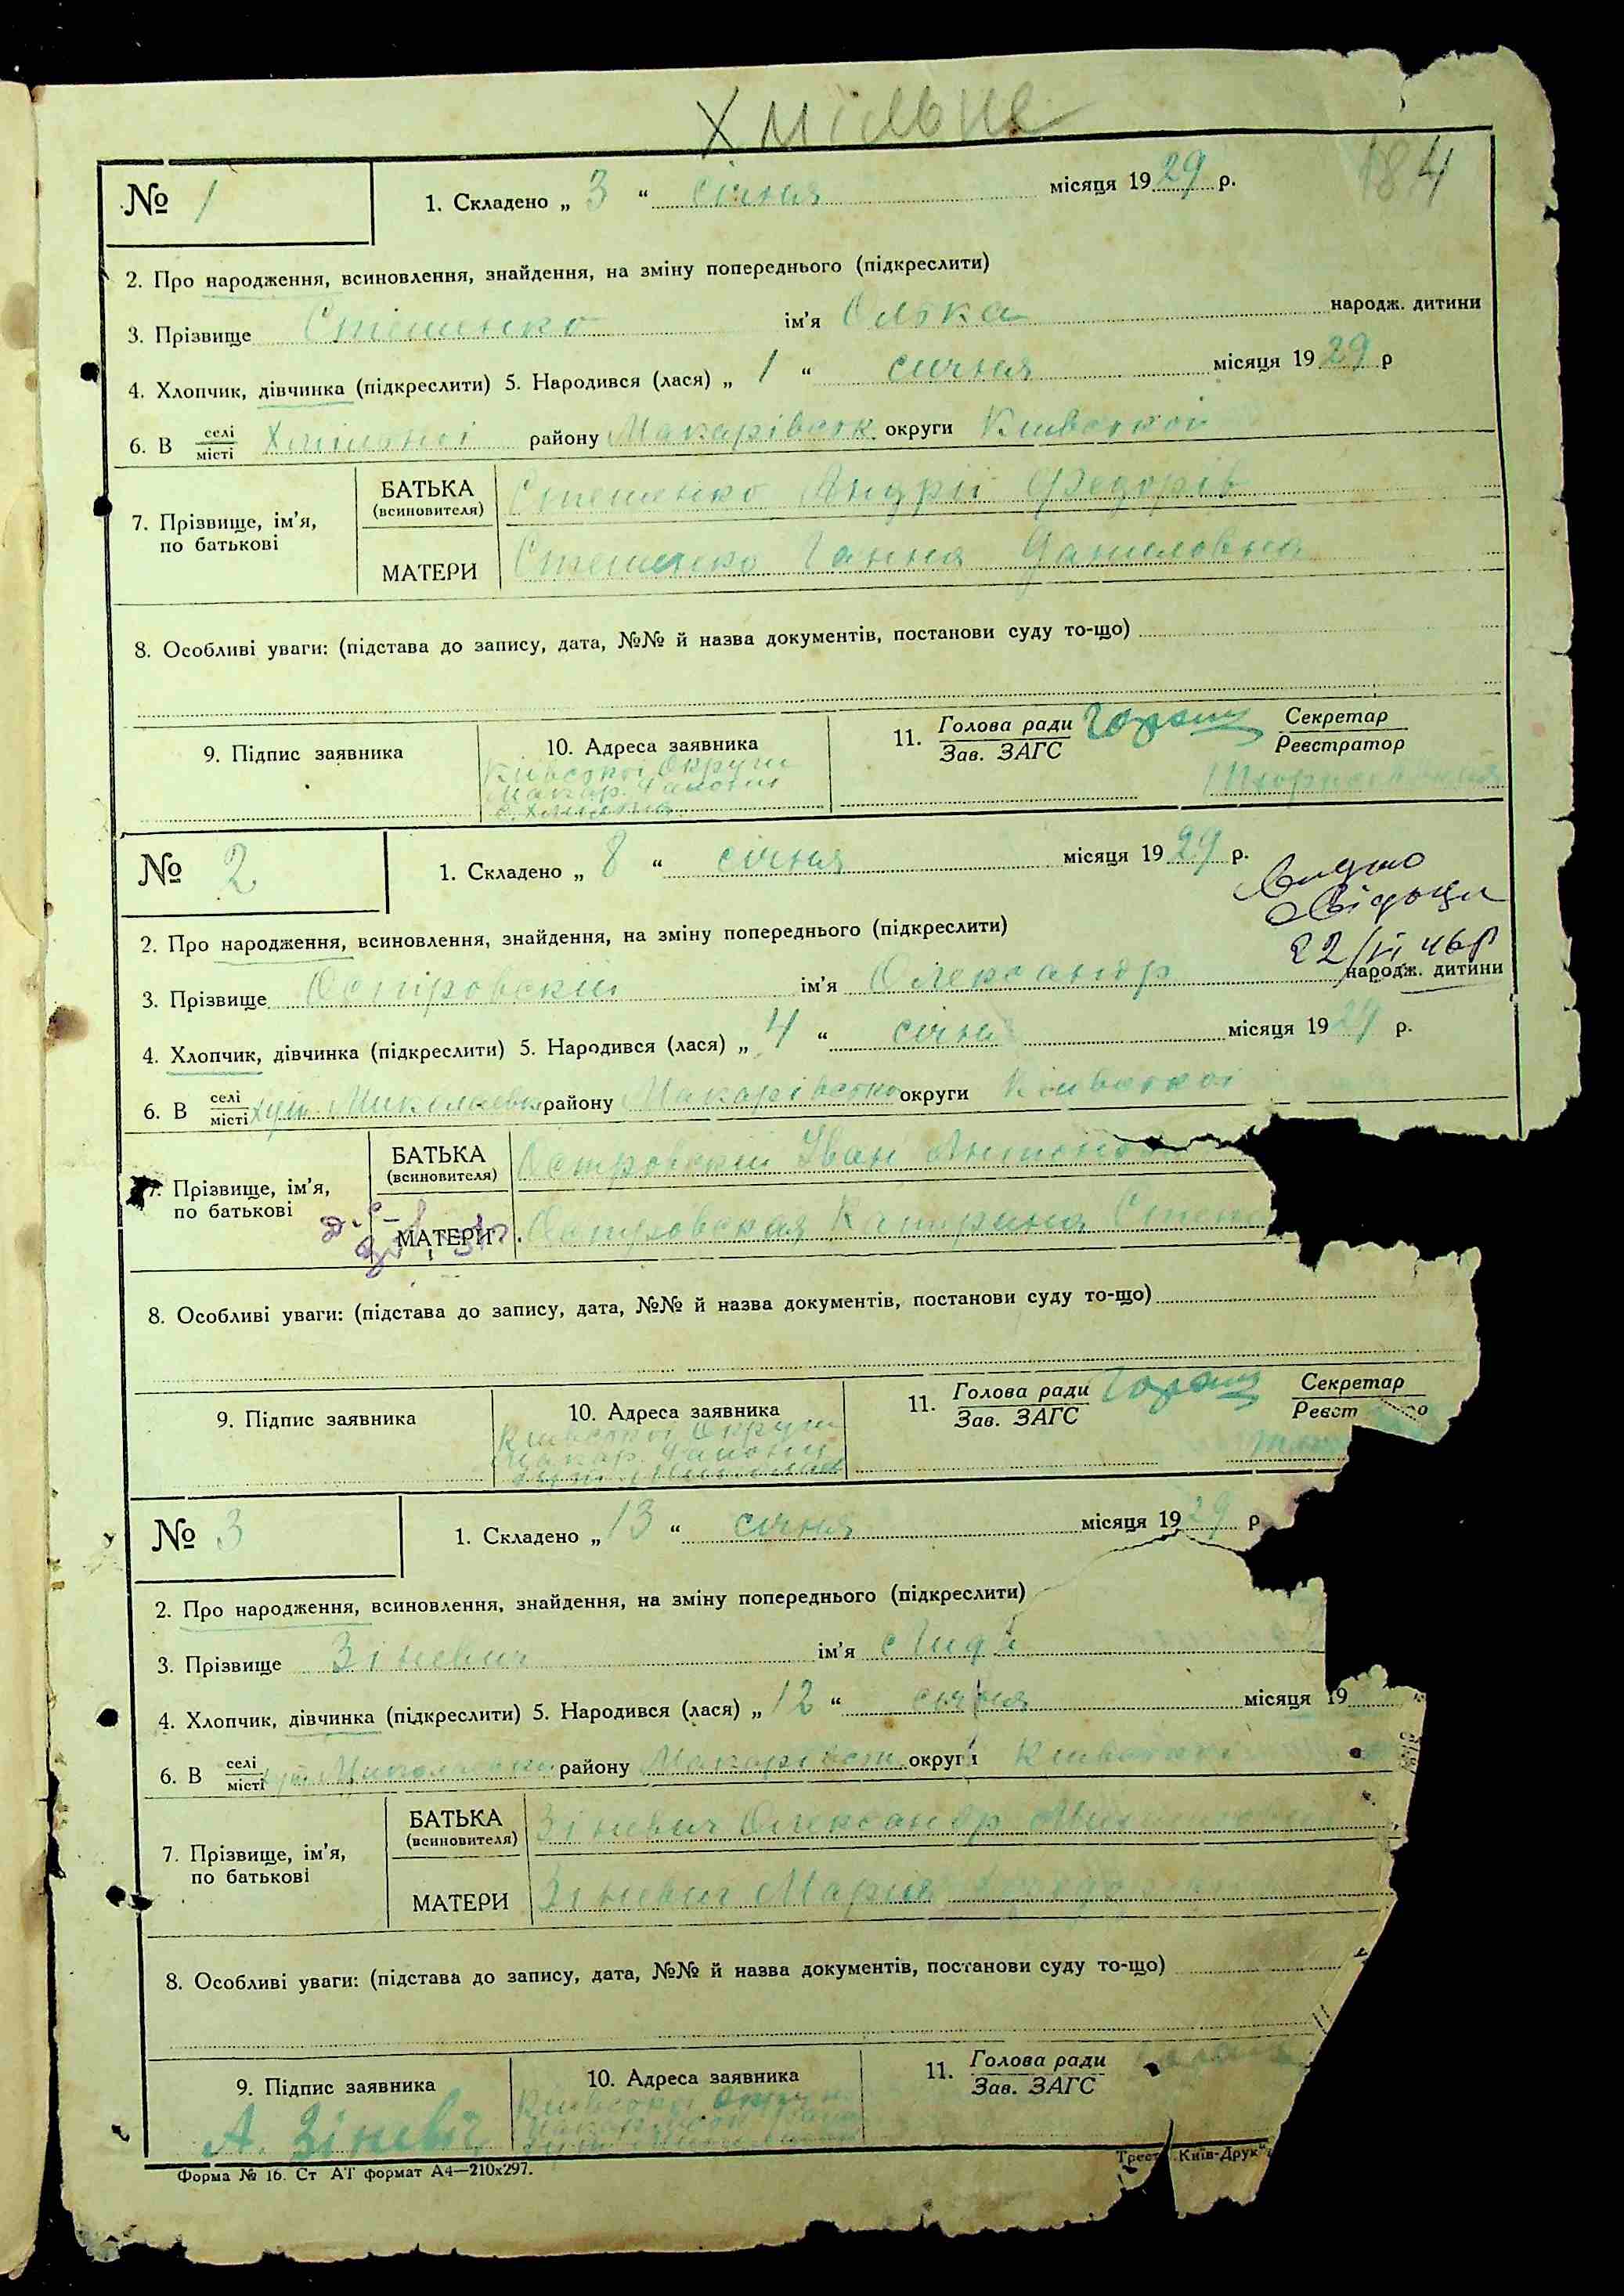 Хмільна
184
№ 1
1. Складено „ 3 “ січня місяця 1929 р.
2. Про народження, всиновлення, знайдення, на зміну попереднього (підкреслити)
3. Прізвище Стешенко ім’я Олька народж. дитини
4. Хлопчик, дівчинка (підкреслити) 5. Народився (лася) „ 1 “ січня місяця 1929 р
6. В селі місті Хмільній району Макарівськ округи Київської
7. Прізвище, ім’я, по батькові
БАТЬКА (всиновителя) Стешенко Андрій Федорів
МАТЕРИ Стешенко Ганна Даниловна
8. Особливі уваги: (підстава до запису, дата, №№ й назва документів, постанови суду то-що)
9. Підпис заявника
10. Адреса заявника
Київської Округи
Макар. Района
с. Хмільна
11. Голова ради Зав. ЗАГС
Секретар Реєстратор
№ 2
1. Складено „ 8 “ січня місяця 1929 р.
Видано
свідоцтв
2. Про народження, всиновлення, знайдення, на зміну попереднього (підкреслити)
22/VI 46р
3. Прізвище Островский ім’я Олександр народж. дитини
4. Хлопчик, дівчинка (підкреслити) 5. Народився (лася) „ 4 “ січня місяця 1929 р.
6. В селі місті хут. Миколаевка району Макарівсько округи Київської
7. Прізвище, ім’я, по батькові
БАТЬКА (всиновителя) Островский Іван Антонов
МАТЕРИ Островская Катерина Степ
8. Особливі уваги: (підстава до запису, дата, №№ й назва документів, постанови суду то-що)
9. Підпис заявника
10. Адреса заявника
Київської Округи
Макар. Района
хут. Миколаев
11. Голова ради Зав. ЗАГС
Секретар Реєст о
№ 3
1. Складено „ 13 “ січня місяця 1929 р
2. Про народження, всиновлення, знайдення, на зміну попереднього (підкреслити)
3. Прізвище Зіневич ім’я Лида
4. Хлопчик, дівчинка (підкреслити) 5. Народився (лася) „ 12 “ січня місяця 19
6. В селі місті хут. Миколаевка району Макарівськ округи Київської
7. Прізвище, ім’я, по батькові
БАТЬКА (всиновителя) Зіневич Олександр
МАТЕРИ Зіневич Мария
8. Особливі уваги: (підстава до запису, дата, №№ й назва документів, постанови суду то-що)
9. Підпис заявника
А. Зіневич
10. Адреса заявника
Київської Округи
11. Голова ради Зав. ЗАГС
Форма № 16. Ст АТ формат А4—210х297.
Трест „Київ-Друк“